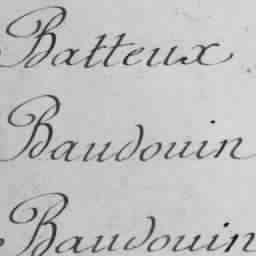 Batteux
Baudouin
Baudouin